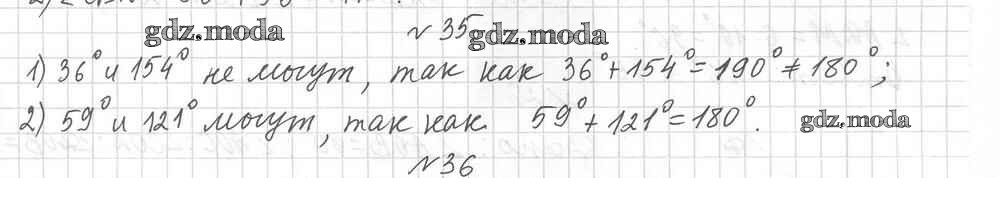 gdz.moda № 35 gdz.moda
1) 36° и 154° не могут, так как 36°+154°=190°≠180°;
2) 59° и 121° могут, так как 59°+121°=180°. gdz.moda
№36